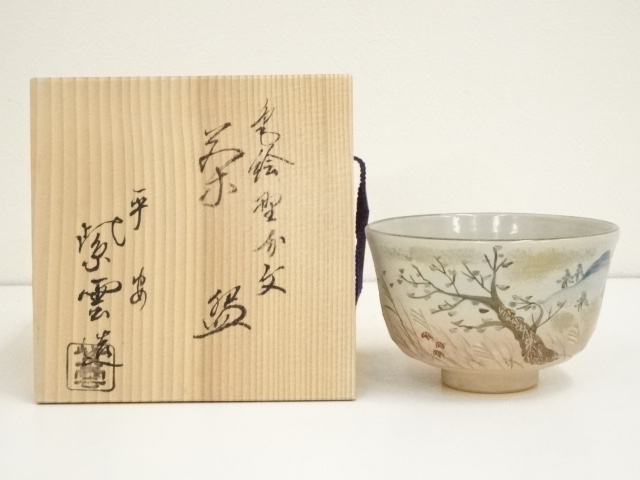 色絵野分文
茶碗
平安
紫雲造